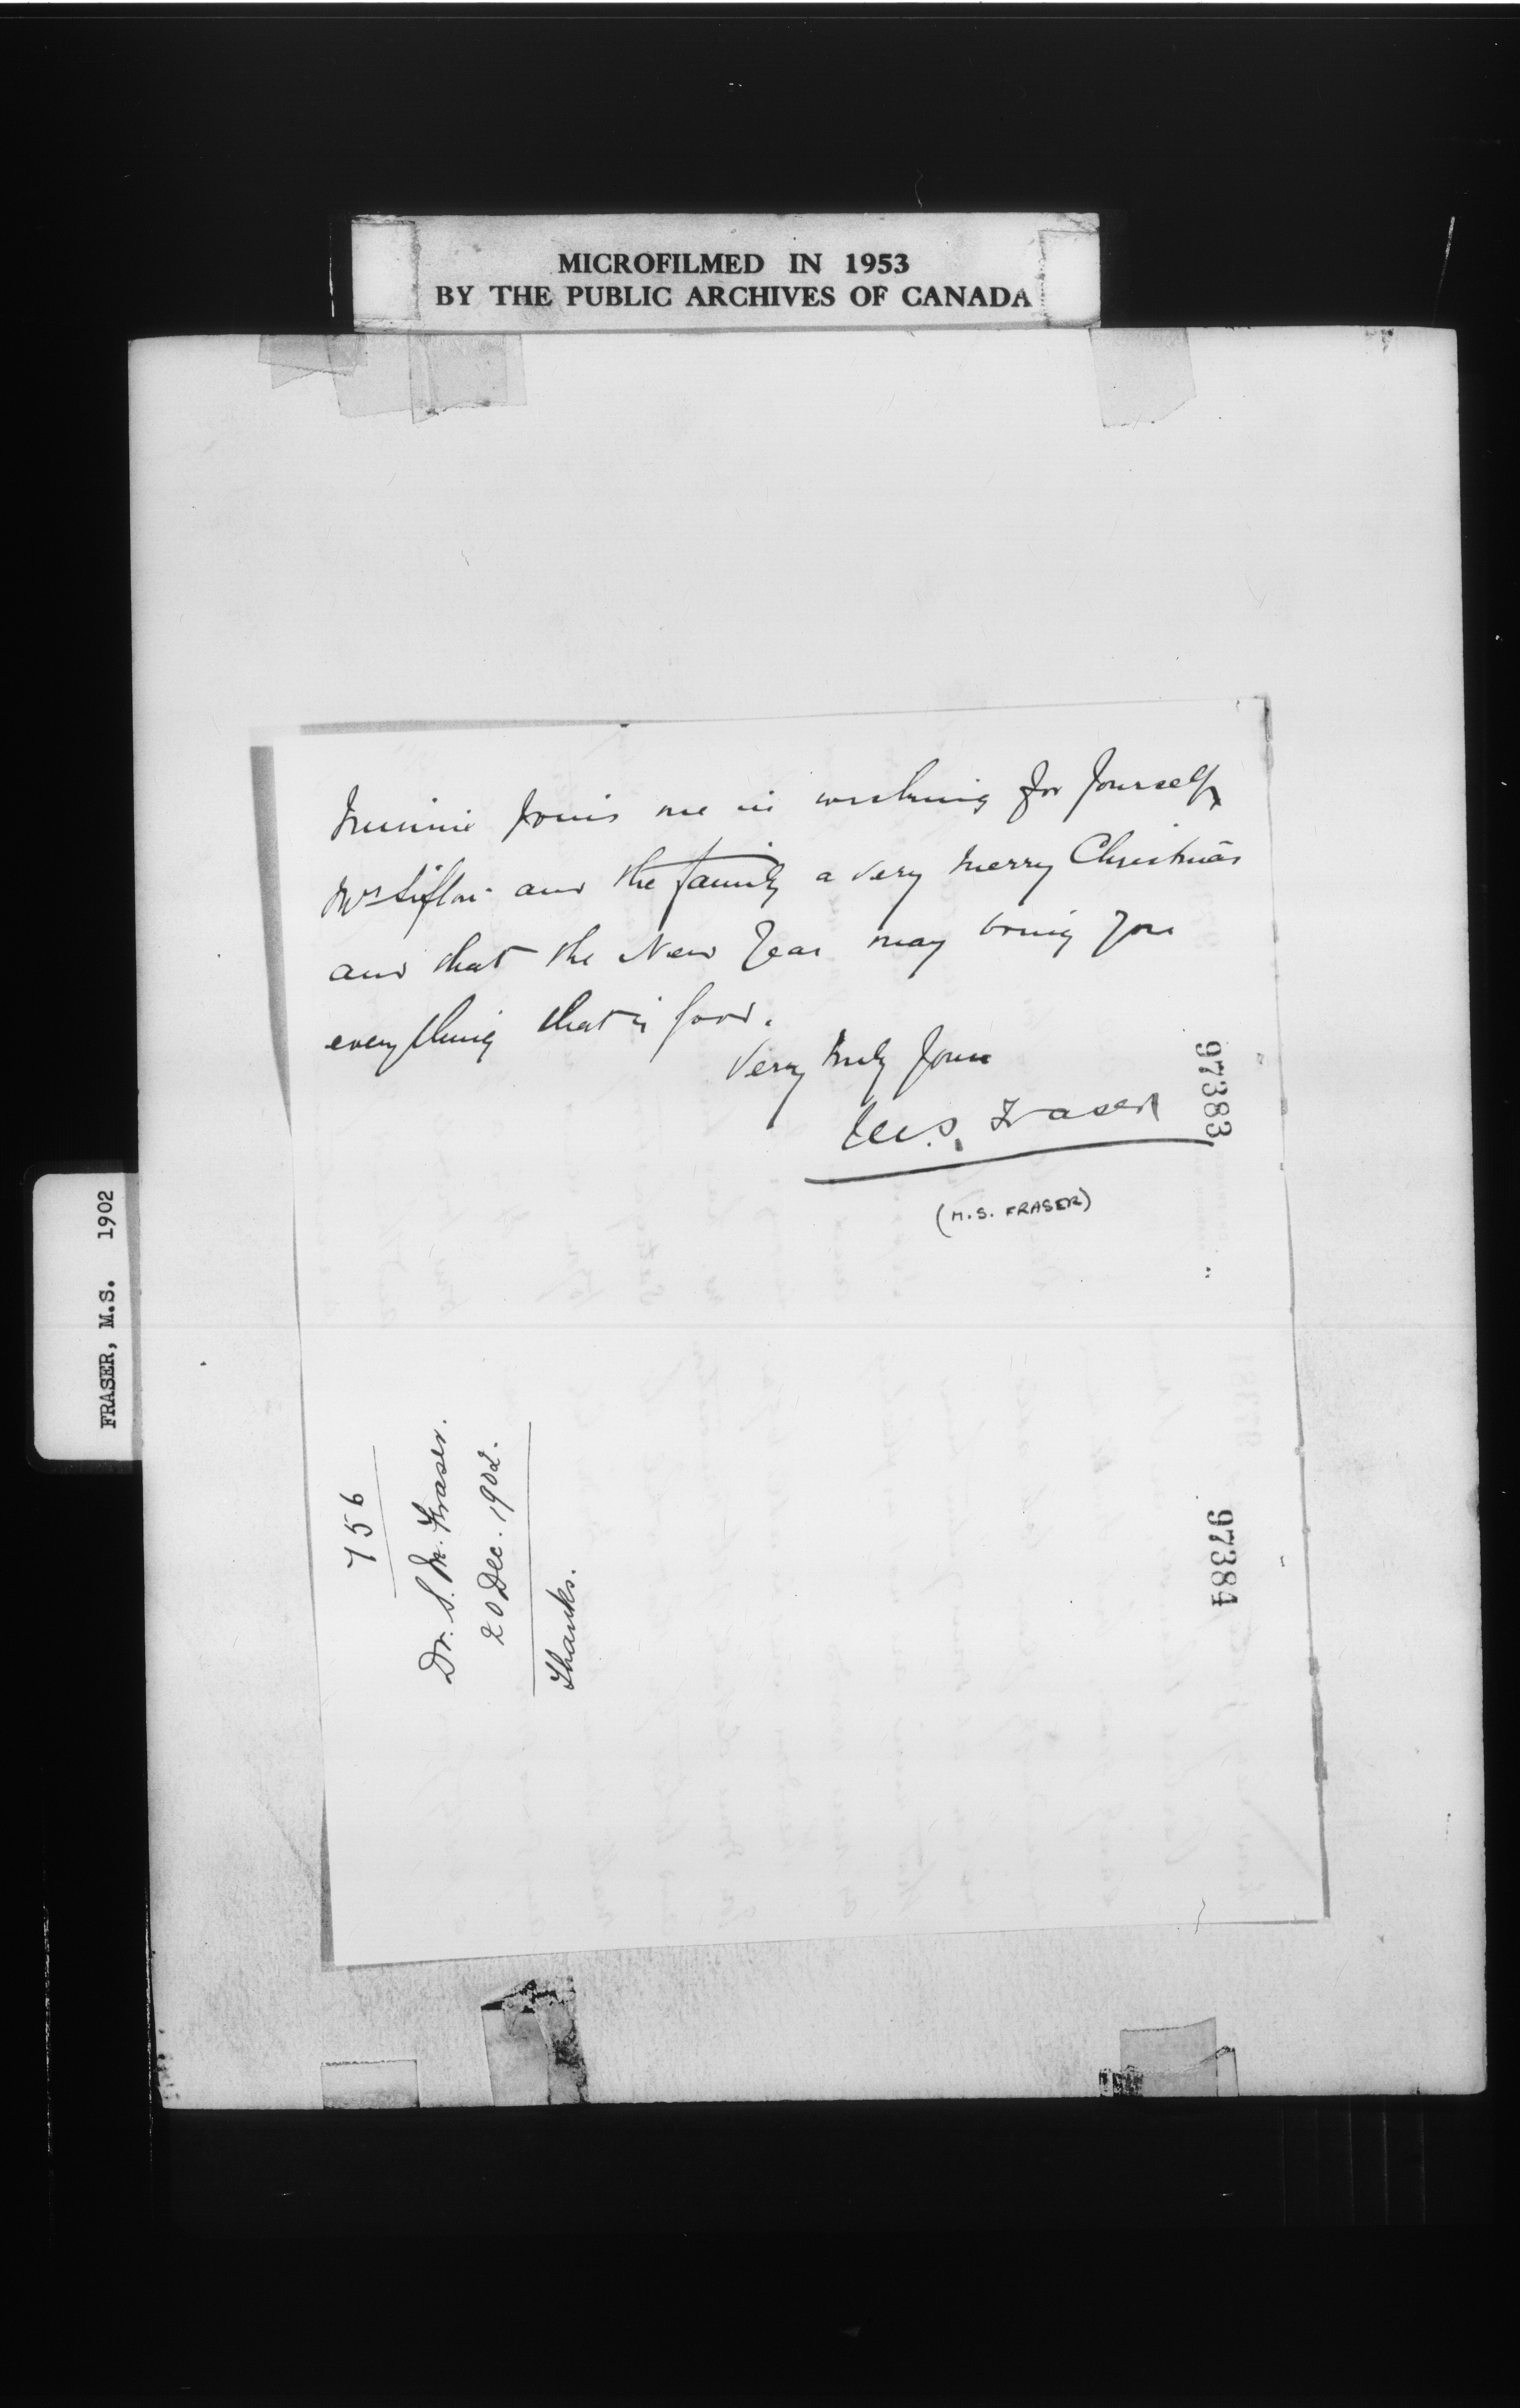 MICROFILMED IN 1953
BY THE PUBLIC ARCHIVES OF CANADA
Minnie joins me in wishing for yourself
Mrs Sifton and the family a very merry Christmas
and that the New Year may bring you
everything that is good.
Very truly yours
M.S. Fraser
(M.S. FRASER)
97383
FRASER, M.S. 1902
756
Dr. S. M. Fraser.
20 Dec. 1902.
Thanks.
97384